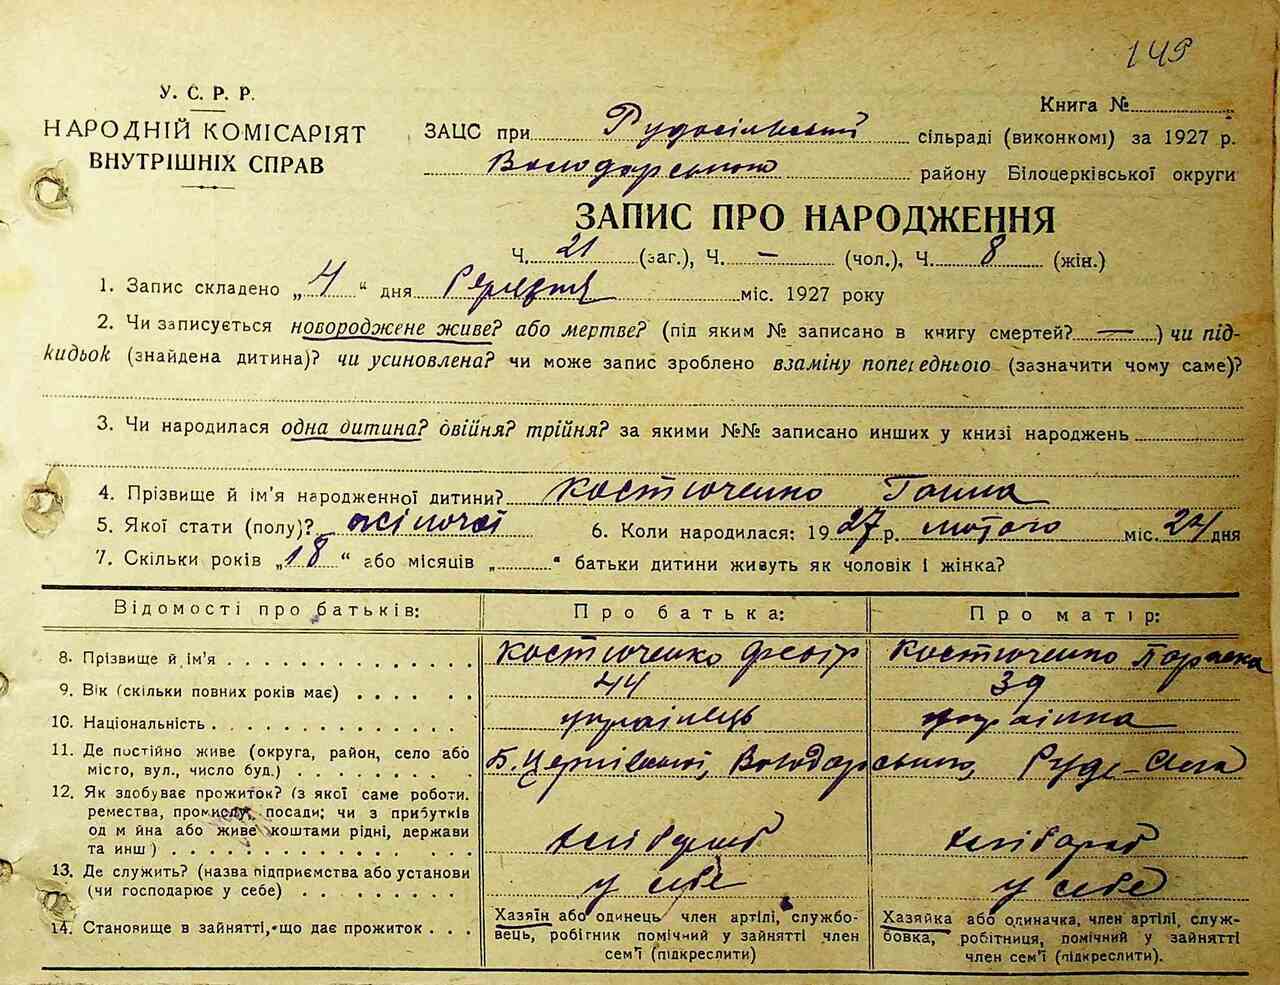 149
У. С. Р. Р.
НАРОДНІЙ КОМІСАРІЯТ
ВНУТРІШНІХ СПРАВ
Книга №
ЗАЦС при Рудосільський сільраді (виконкомі) за 1927 р.
Володарського району Білоцерківської округи
ЗАПИС ПРО НАРОДЖЕННЯ
Ч. 21 (заг.), Ч. — (чол.), Ч. 8 (жін.)
1. Запис складено „ 4 “ дня міс. 1927 року
2. Чи записується новороджене живе? або мертве? (під яким № записано в книгу смертей? —) чи під-
кидьок (знайдена дитина)? чи усиновлена? чи може запис зроблено взаміну попереднього (зазначити чому саме)?
3. Чи народилася одна дитина? двійня? трійня? за якими №№ записано инших у книзі народжень
4. Прізвище й ім'я народженної дитини? Костюченко Ганна
5. Якої стати (полу)? жіночої 6. Коли народилася: 1927 р. лютого міс. 24 дня
7. Скільки років „ 18 “ або місяців „ “ батьки дитини живуть як чоловік і жінка?
Відомості про батьків: Про батька: Про матір:
8. Прізвище й ім'я Костюченко Федір Костюченко Параска
9. Вік (скільки повних років має) 44 39
10. Національність українець українка
11. Де постійно живе (округа, район, село або
місто, вул., число буд.) Б. Церківської, Володарського, Руде-Село
12. Як здобуває прожиток? (з якої саме роботи.
ремества, промислу, посади; чи з прибутків
од майна або живе коштами рідні, держави
та инш) хлібороб хлібороб
13. Де служить? (назва підприємства або установи
(чи господарює у себе) у себе у себе
14. Становище в зайнятті, що дає прожиток
Хазяїн або одинець член артілі, службо-
вець, робігник помічний у зайнятті член
сем'ї (підкреслити)
Хазяйка або одиначка, член артілі, служ-
бовка, робітниця, помічний у зайнятті
член сем'ї (підкреслити).